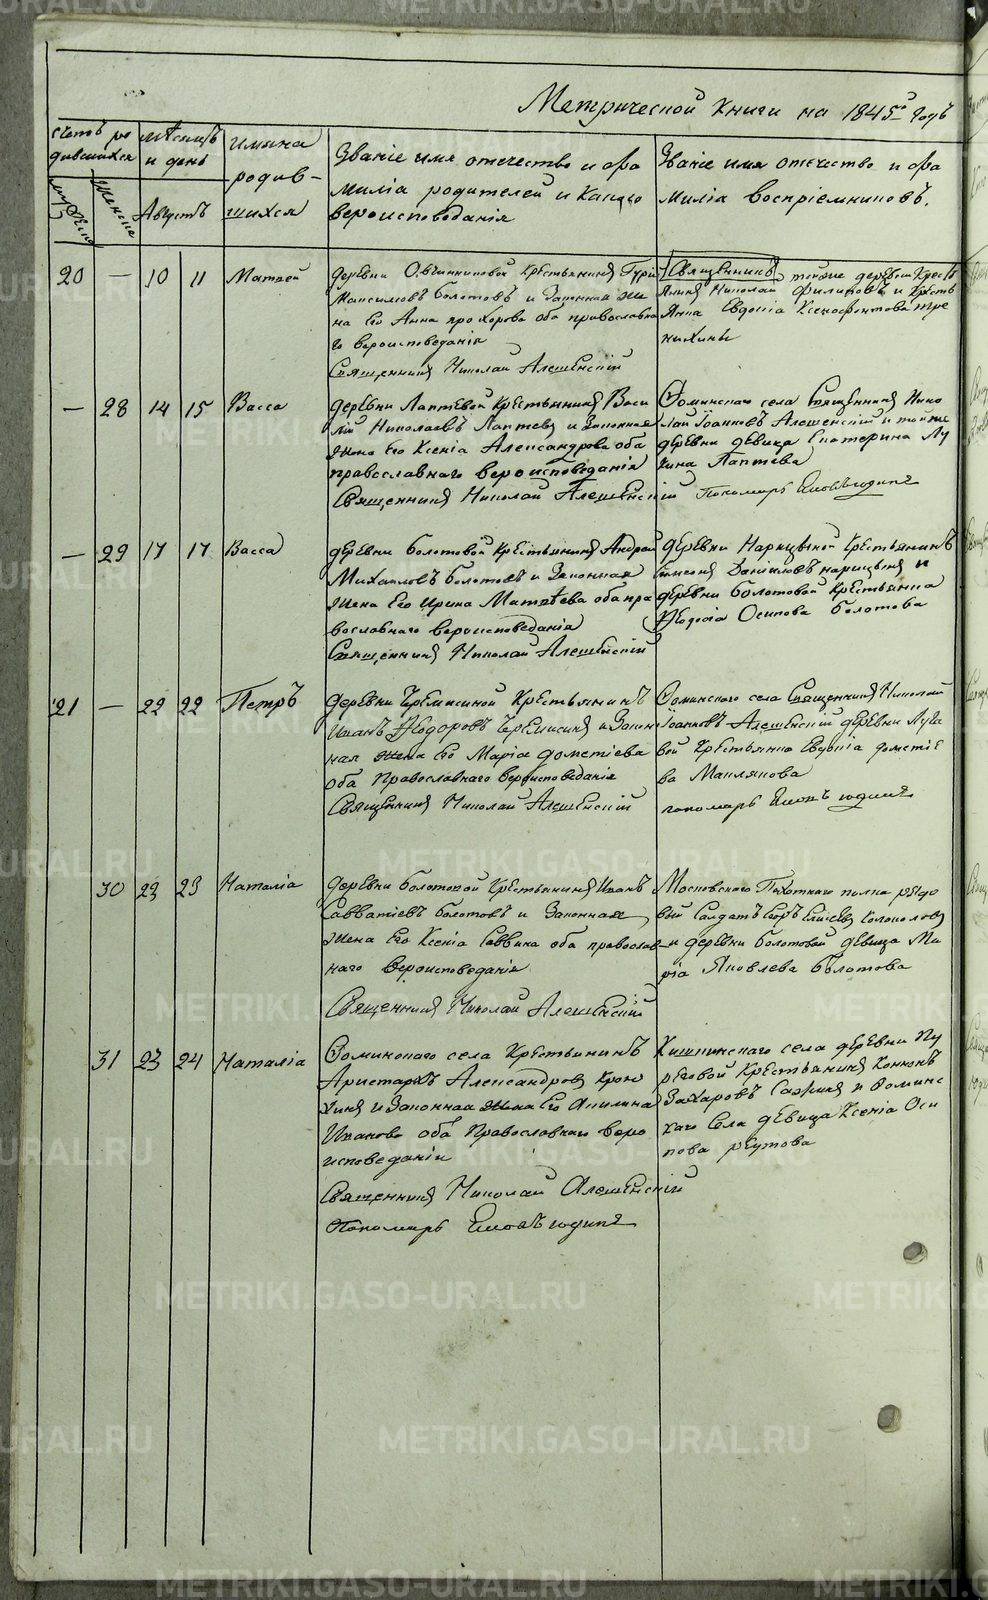 Метрической книги на 1845й годъ
счетъ ро
дившихся
мужеска
женска
мѣсяцъ
и день
Августъ
имяна
родив-
шихся
Званіе имя отечество и фа
миліа родителей и какаго
вероисповеданія
Званіе имя отечество и фа
миліа воспріемниковъ.
20 — 10 11 Матвей
деревни Овчинниковой крестьянинъ Гурій
Максимовъ Болотовъ и законная же
на Его Анна прохорова оба православна
го вероисповеданія
Священникъ Николай Алешенскій
Священникъ тойже деревни крестъ
янинъ Николай Филиповъ и крестъ
янка Евдокіа Ксенофонтова тре
нихины
— 28 14 15 Васса
деревни Лаптевой крестьянинъ Васи
лій Николаевъ Лаптевъ и законная
жена Его Ксеніа Александрова оба
православнаго вероисповеданія
Священникъ Николай Алешенскій
Фоминскаго села Священникъ Нико
лай Іоанновъ Алешенскій и тойже
деревни девица Екатерина Лу
кина Лаптева
Пономарь Юдинъ
— 29 17 17 Васса
деревни Болотовой крестьянинъ Андрей
Михайловъ Болотовъ и законная
жена Его Ирина Матвѣева оба пра
вославнаго вероисповеданія
Священникъ Николай Алешенскій
деревни Нарицыной крестьянинъ
Симеонъ Даніиловъ нарицынъ и
деревни Болотовой крестьянка
Ѳеодосіа Осипова Болотова
21 — 22 22 Петръ
деревни Черемисиной крестьянинъ
Иванъ Ѳеодоровъ Черемисинъ и закон
ная жена Его Маріа дометіева
оба Православнаго вероисповеданіа
Священникъ Николай Алешенскій
Фоминскаго села Священникъ Николай
Іоанновъ Алешенскій деревни Луга
вой крестьянка Евдокіа дометіе
ва Маплякова
пономарь юдинъ
30 22 23 Наталіа
деревни Болотовой крестьянинъ Иванъ
Савватіевъ Болотовъ и законная
жена Его Ксеніа Саввина оба православ
наго вероисповеданія
Священникъ Николай Алешенскій
Московскаго Пѣхотнаго полка рядо
вый Солдатъ Елисеевъ колоколовъ
и деревни Болотовой девица Ма
ріа Яковлева Болотова
31 23 24 Наталіа
Фоминскаго села крестьянинъ
Аристархъ Александровъ
и законная жена Его Акилина
Иванова оба Православнаго веро
исповеданіи
Священникъ Николай Алешенскій
Пономарь юдинъ
села деревни Пу
реговой крестьянинъ кононъ
Захаровъ Сажинъ и Фоминс
каго Села девица Ксеніа Оси
пова реутова
METRIKI.GASO-URAL.RU